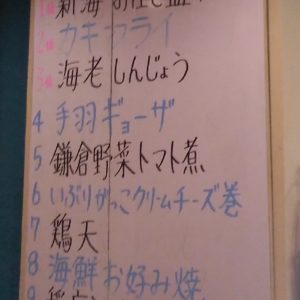 新海
カキフライ
海老しんじょう
4 手羽ギョーザ
5 鎌倉野菜トマト煮
6 いぶりがっこクリームチーズ巻
7 鶏天
8 海鮮お好み焼